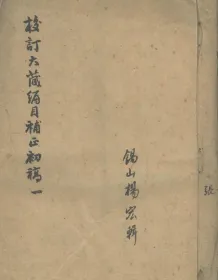 校訂大藏編目補正初稿一
錫山楊宏輯